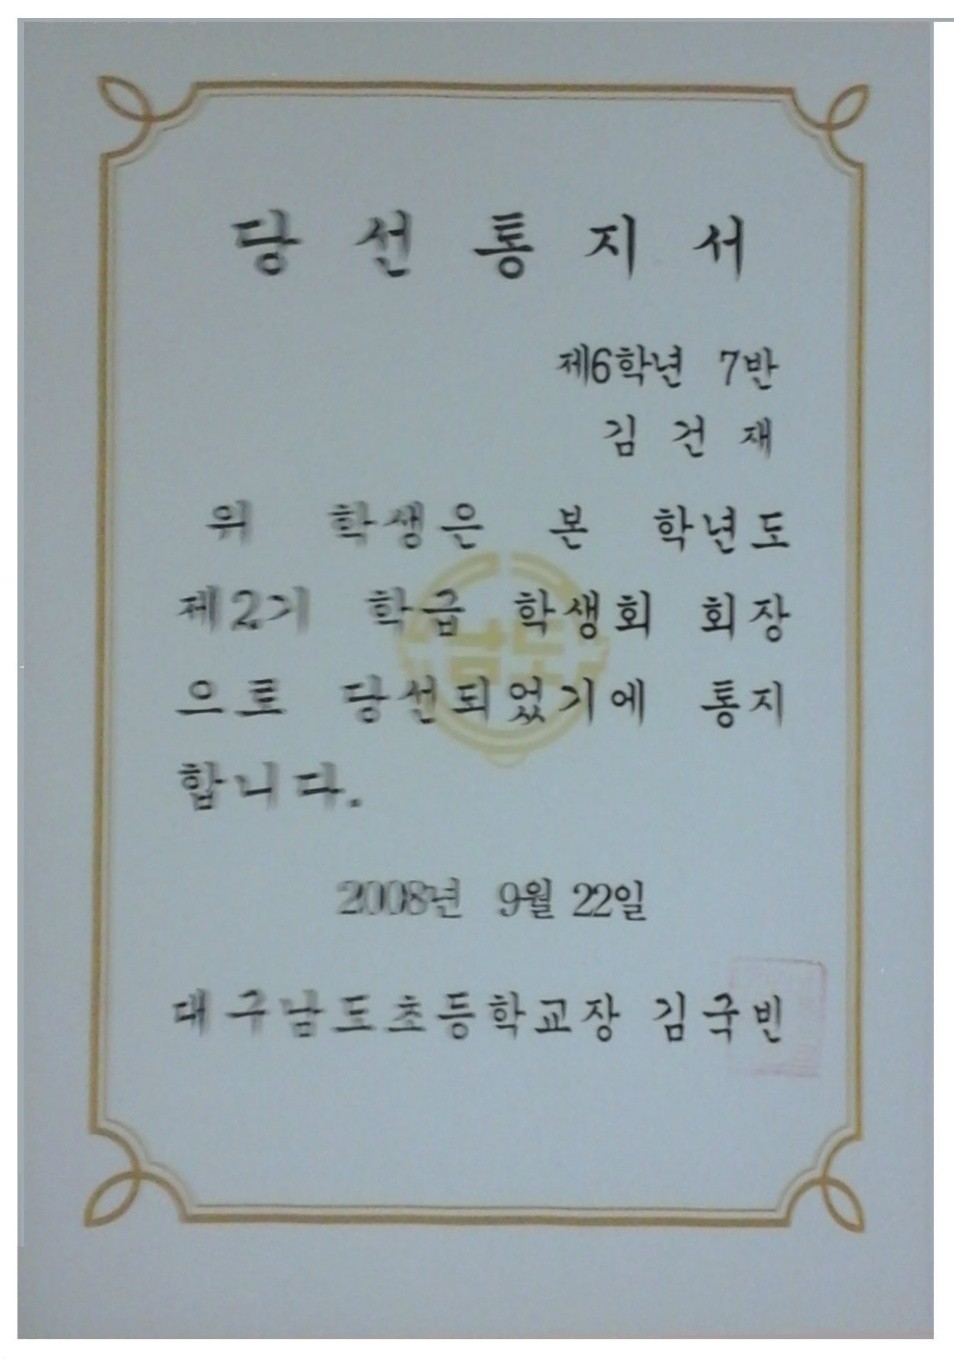 당선통지서
제6학년 7반
김건재
위 학생은 본 학년도
제2기 학급 학생회 회장
으로 당선되었기에 통지
합니다.
남도
2008년 9월 22일
대구남도초등학교장 김국빈